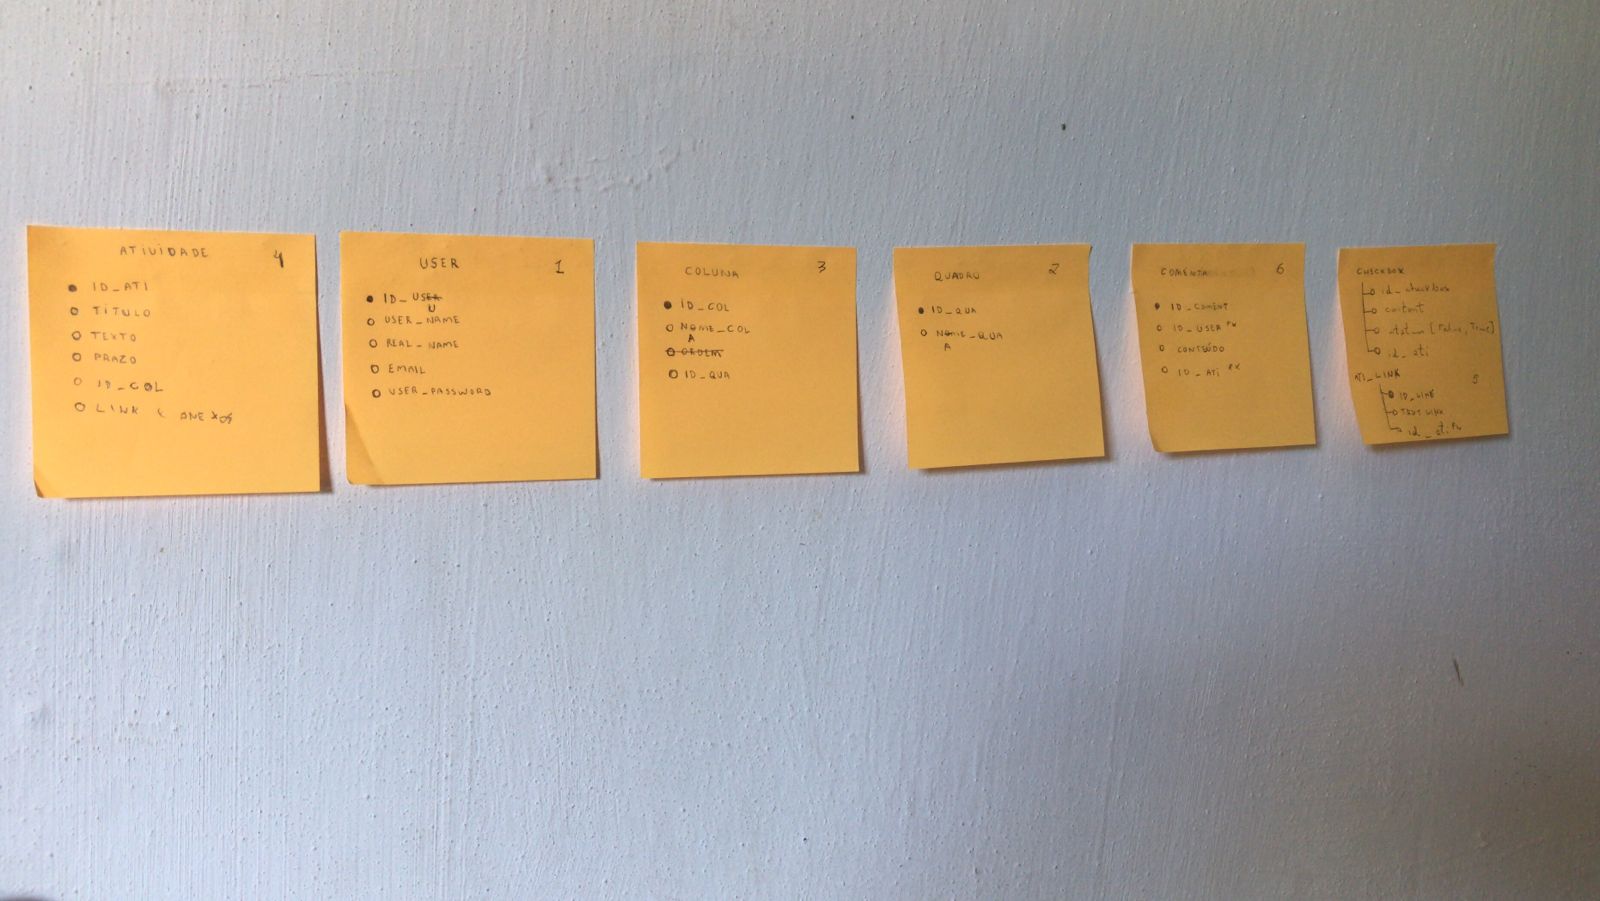 ATIVIDADE 4
ID_ATI
TITULO
TEXTO
PRAZO
ID_COL
LINK ANEXOS
USER 1
ID_USER
U
USER_NAME
REAL_NAME
EMAIL
USER_PASSWORD
COLUNA 3
ID_COL
NOME_COL
A
ORDEM
ID_QUA
QUADRO 2
ID_QUA
NOME_QUA
A
COMENTA 6
ID_COMENT
ID_USER
CONTEÚDO
ID_ATI
CHECKBOX
id_checkbox
content
status [False, True]
id_ati
ATI_LINK 5
ID_LINK
TEXT LINK
id_ati